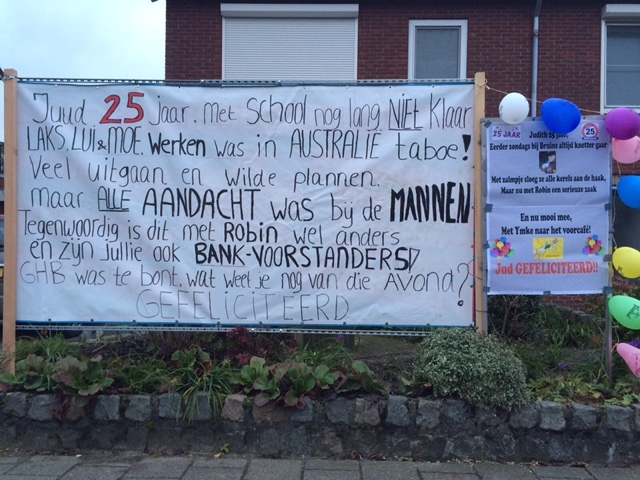 Juud 25 jaar. met school nog lang NIET klaar
LAKS, LUI & MOE. Werken was in AUSTRALIË taboe!
Veel uitgaan en wilde plannen.
maar ALLE AANDACHT was bij de MANNEN
Tegenwoordig is dit met Robin wel anders
en zijn jullie ook BANK-VOORSTANDERS!
GHB was te bont. wat weet je nog van die Avond?
GEFELICITEERD
25 JAAR Judith 25 jaar, 25
Eerder zondags bij Bruins altijd knetter gaar
Met zatimpje sloeg ze alle kerels aan de haak,
Maar nu met Robin een serieuze zaak
En nu mooi mee,
Met Ymke naar het voorcafé!
Jud GEFELICITEERD!!